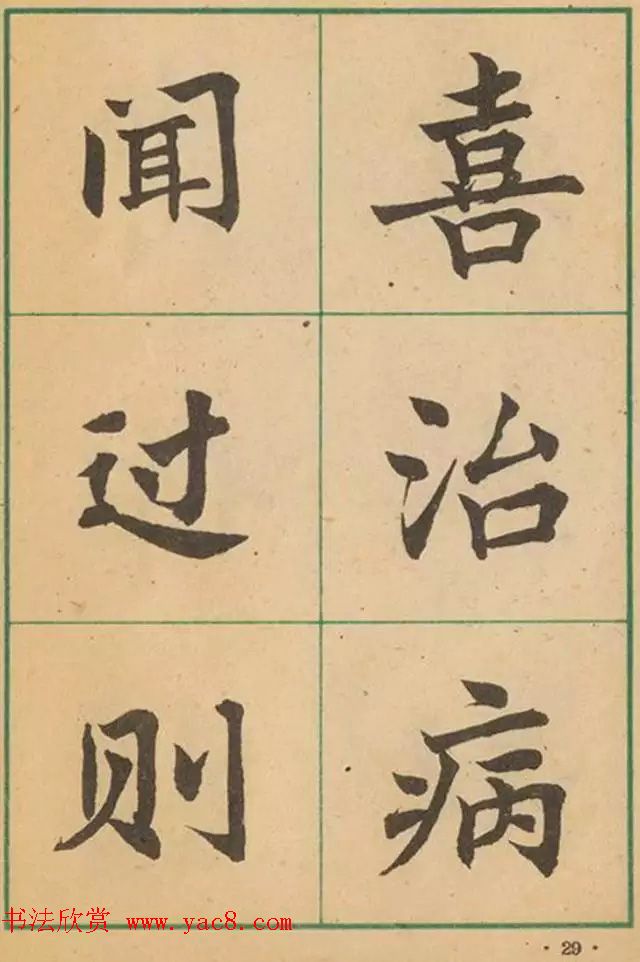 闻过则
喜治病
书法欣赏 www.yac8.com
· 29 ·